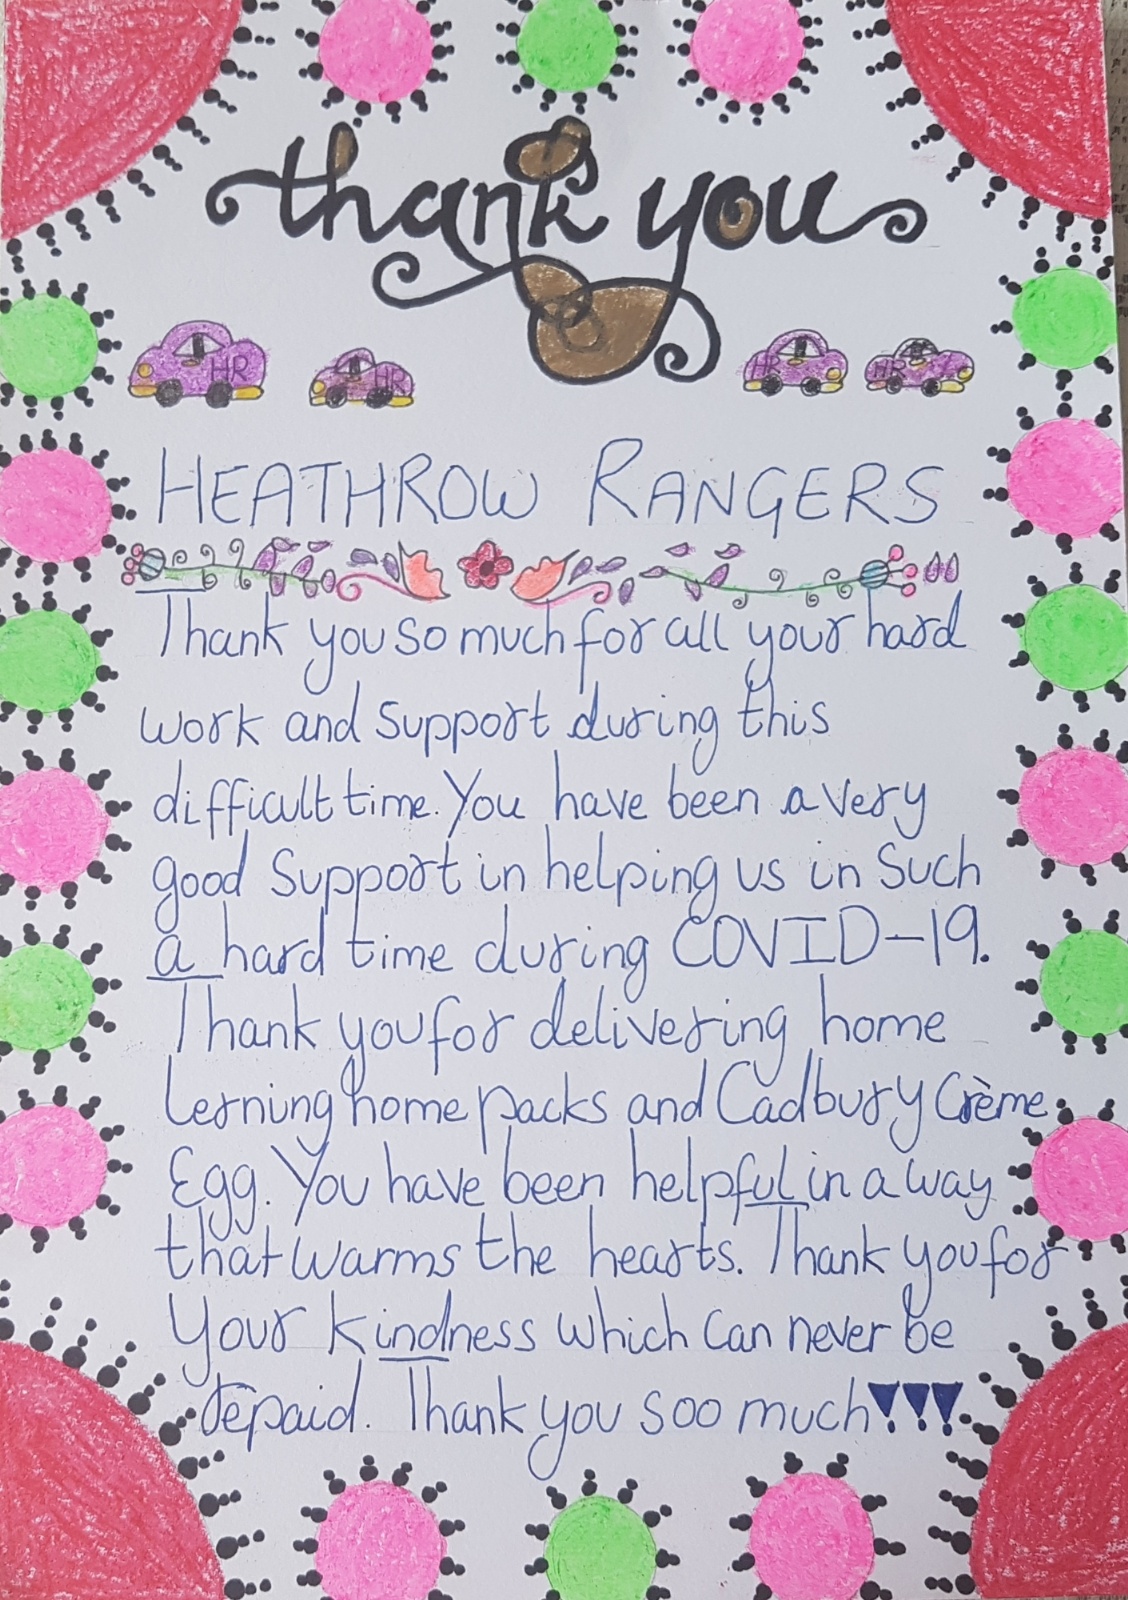 thank you
HR HR HR HR
HEATHROW RANGERS
Thank you so much for all your hard
work and support during this
difficult time. You have been a very
good support in helping us in such
a hard time during COVID-19.
Thank you for delivering home
lerning home packs and Cadbury Crème
Egg. You have been helpful in a way
that warms the hearts. Thank you for
your kindness which can never be
repaid. Thank you soo much!!!